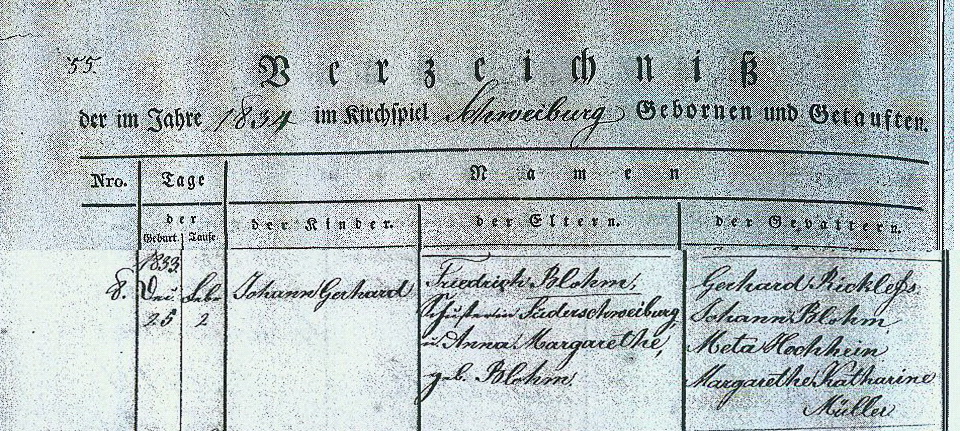 55.
Verzeichniß
der im Jahre 1834 im Kirchspiel Schweiburg Gebornen und Getauften.
Nro. Tage Namen
der Geburt. der Taufe der Kinder. der Eltern. der Gevattern.
1833.
8. Dec. Febr. Johann Gerhard Friedrich Blohm, Gerhard Ricklefs
25 2 Schuster in Süderschweiburg Johann Blohm
u. Anna Margarethe, Meta Hochhein
geb. Blohm. Margarethe Katharine
Müller